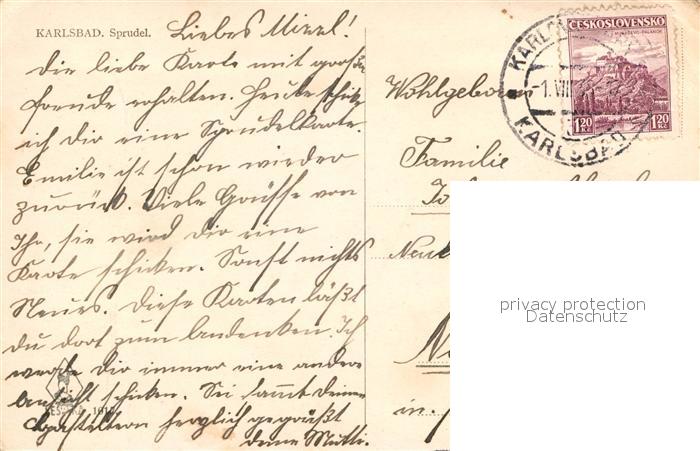 KARLSBAD. Sprudel.
Liebes Mizzl!
Die liebe Karte mit großer
Freude erhalten. Heute schicke
ich dir eine Sprudelkarte.
Emilie ist schon wieder
zurück. Viele Grüsse von
Ihr, sie wird dir eine
Karte schicken. Sonst nichts
Neues. Diese Karten läßt
du dort zum andenken. Ich
werde dir immer eine andere
ansicht schicken. Sei samt deinen
herzlich gegrüßt
deine Mutti.
Wohlgeboren
Familie
in
ČESKOSLOVENSKO
MUKAČEVO-PALANOK
1.20 Kč 1.20 Kč
KARLOVY
-1.VII
KARLSBAD
privacy protection
Datenschutz